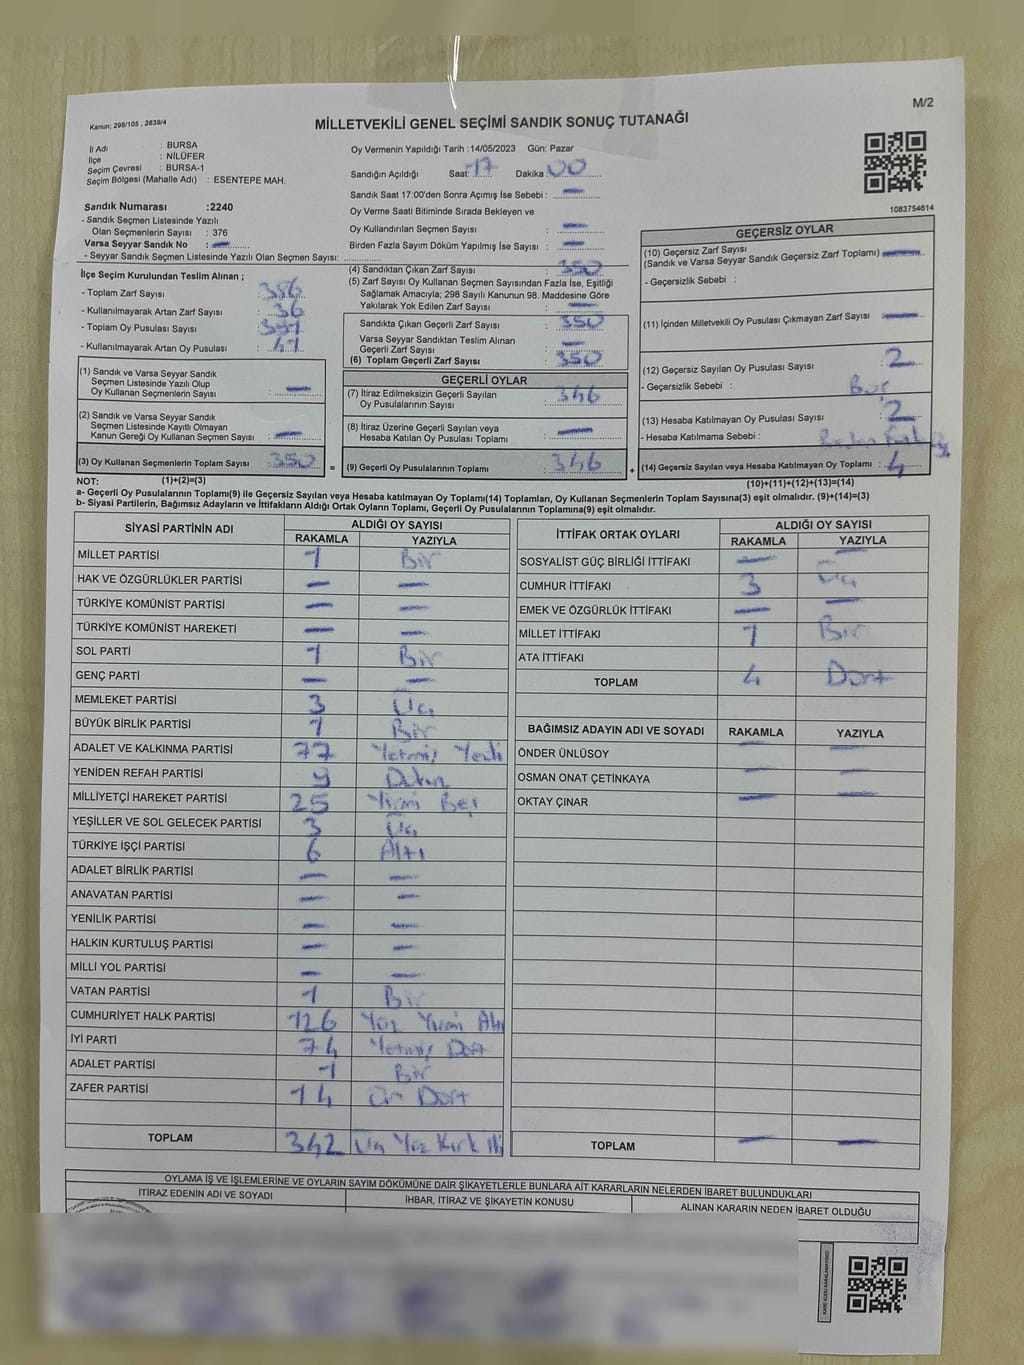 M/2
Kanun; 298/105 , 2839/4
MİLLETVEKİLİ GENEL SEÇİMİ SANDIK SONUÇ TUTANAĞI
İl Adı : BURSA
İlçe : NİLÜFER
Seçim Çevresi : BURSA-1
Seçim Bölgesi (Mahalle Adı) : ESENTEPE MAH.
Oy Vermenin Yapıldığı Tarih :14/05/2023 Gün: Pazar
Sandığın Açıldığı Saat: 17 Dakika: 00
Sandık Saat 17:00'den Sonra Açımış İse Sebebi : —
Oy Verme Saati Bitiminde Sırada Bekleyen ve
Oy Kullandırılan Seçmen Sayısı : —
Birden Fazla Sayım Döküm Yapılmış İse Sayısı : —
1083754614
Sandık Numarası :2240
- Sandık Seçmen Listesinde Yazılı
Olan Seçmenlerin Sayısı : 376
Varsa Seyyar Sandık No : —
- Seyyar Sandık Seçmen Listesinde Yazılı Olan Seçmen Sayısı:
İlçe Seçim Kurulundan Teslim Alınan ;
- Toplam Zarf Sayısı : 386
- Kullanılmayarak Artan Zarf Sayısı : 36
- Toplam Oy Pusulası Sayısı :
- Kullanılmayarak Artan Oy Pusulası : 41
(1) Sandık ve Varsa Seyyar Sandık
Seçmen Listesinde Yazılı Olup
Oy Kullanan Seçmenlerin Sayısı : —
(2) Sandık ve Varsa Seyyar Sandık
Seçmen Listesinde Kayıtlı Olmayan
Kanun Gereği Oy Kullanan Seçmen Sayısı : —
(3) Oy Kullanan Seçmenlerin Toplam Sayısı : 350
=
(4) Sandıktan Çıkan Zarf Sayısı : 350
(5) Zarf Sayısı Oy Kullanan Seçmen Sayısından Fazla İse, Eşitliği
Sağlamak Amacıyla; 298 Sayılı Kanunun 98. Maddesine Göre
Yakılarak Yok Edilen Zarf Sayısı : —
Sandıkta Çıkan Geçerli Zarf Sayısı : 350
Varsa Seyyar Sandıktan Teslim Alınan
Geçerli Zarf Sayısı : —
(6) Toplam Geçerli Zarf Sayısı : 350
GEÇERLİ OYLAR
(7) İtiraz Edilmeksizin Geçerli Sayılan
Oy Pusulalarının Sayısı : 346
(8) İtiraz Üzerine Geçerli Sayılan veya
Hesaba Katılan Oy Pusulası Toplamı : —
(9) Geçerli Oy Pusulalarının Toplamı : 346
+
GEÇERSİZ OYLAR
(10) Geçersiz Zarf Sayısı
(Sandık ve Varsa Seyyar Sandık Geçersiz Zarf Toplamı) —
- Geçersizlik Sebebi :
(11) İçinden Milletvekili Oy Pusulası Çıkmayan Zarf Sayısı —
(12) Geçersiz Sayılan Oy Pusulası Sayısı : 2
- Geçersizlik Sebebi : Boş
(13) Hesaba Katılmayan Oy Pusulası Sayısı : 2
- Hesaba Katılmama Sebebi :
(14) Geçersiz Sayılan veya Hesaba Katılmayan Oy Toplamı : 4
NOT: (1)+(2)=(3)
(10)+(11)+(12)+(13)=(14)
a- Geçerli Oy Pusulalarının Toplamı(9) ile Geçersiz Sayılan veya Hesaba katılmayan Oy Toplamı(14) Toplamları, Oy Kullanan Seçmenlerin Toplam Sayısına(3) eşit olmalıdır. (9)+(14)=(3)
b- Siyasi Partilerin, Bağımsız Adayların ve İttifakların Aldığı Ortak Oyların Toplamı, Geçerli Oy Pusulalarının Toplamına(9) eşit olmalıdır.
SİYASİ PARTİNİN ADI ALDIĞI OY SAYISI
RAKAMLA YAZIYLA
MİLLET PARTİSİ 1 Bir
HAK VE ÖZGÜRLÜKLER PARTİSİ — —
TÜRKİYE KOMÜNİST PARTİSİ — —
TÜRKİYE KOMÜNİST HAREKETİ — —
SOL PARTİ 1 Bir
GENÇ PARTİ — —
MEMLEKET PARTİSİ 3 Üç
BÜYÜK BİRLİK PARTİSİ 1 Bir
ADALET VE KALKINMA PARTİSİ 77 Yetmiş Yedi
YENİDEN REFAH PARTİSİ 9 Dokuz
MİLLİYETÇİ HAREKET PARTİSİ 25 Yirmi Beş
YEŞİLLER VE SOL GELECEK PARTİSİ 3 Üç
TÜRKİYE İŞÇİ PARTİSİ 6 Altı
ADALET BİRLİK PARTİSİ — —
ANAVATAN PARTİSİ — —
YENİLİK PARTİSİ — —
HALKIN KURTULUŞ PARTİSİ — —
MİLLİ YOL PARTİSİ — —
VATAN PARTİSİ 1 Bir
CUMHURİYET HALK PARTİSİ 126 Yüz Yirmi Altı
İYİ PARTİ 74 Yetmiş Dört
ADALET PARTİSİ 1 Bir
ZAFER PARTİSİ 14 On Dört
TOPLAM 342 Üç Yüz Kırk İki
İTTİFAK ORTAK OYLARI ALDIĞI OY SAYISI
RAKAMLA YAZIYLA
SOSYALİST GÜÇ BİRLİĞİ İTTİFAKI — —
CUMHUR İTTİFAKI 3 Üç
EMEK VE ÖZGÜRLÜK İTTİFAKI — —
MİLLET İTTİFAKI 1 Bir
ATA İTTİFAKI
TOPLAM 4 Dört
BAĞIMSIZ ADAYIN ADI VE SOYADI RAKAMLA YAZIYLA
ÖNDER ÜNLÜSOY — —
OSMAN ONAT ÇETİNKAYA — —
OKTAY ÇINAR — —
TOPLAM — —
OYLAMA İŞ VE İŞLEMLERİNE VE OYLARIN SAYIM DÖKÜMÜNE DAİR ŞİKAYETLERLE BUNLARA AİT KARARLARIN NELERDEN İBARET BULUNDUKLARI
İTİRAZ EDENİN ADI VE SOYADI İHBAR, İTİRAZ VE ŞİKAYETİN KONUSU ALINAN KARARIN NEDEN İBARET OLDUĞU